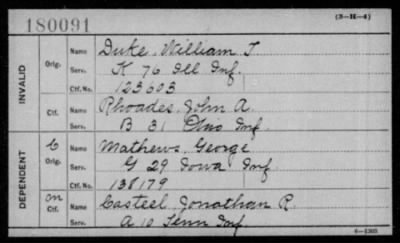 180091
(3-H-4)
INVALID
Orig.
Name Duke, William T
Serv. K 76 Ill Inf.
Ctf. No. 123603
Ctf.
Name Rhoades, John A.
Serv. B 31 Ohio Inf.
DEPENDENT
C
Orig.
Name Mathews, George
Serv. G 29 Iowa Inf.
Ctf. No. 138179
On
Ctf.
Name Casteel, Jonathan R.
Serv. A 10 Tenn Inf.
6-1303